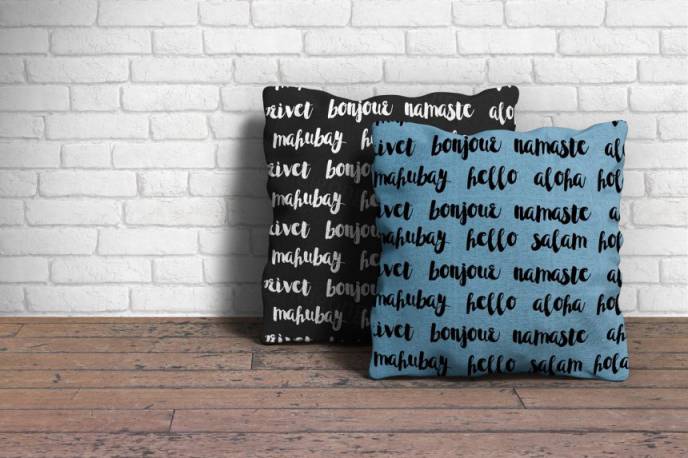 rivet bonjour namaste alo
mahubay he
rivet
mahubay
rivet
mahubay
rivet
mahubay
ivet bonjour namaste al
mahubay hello aloha hola
ivet bonjour namaste al
mahubay hello salam hola
ivet bonjour namaste al
mahubay hello aloha hola
ivet bonjour namaste ah
mahubay hello salam hola